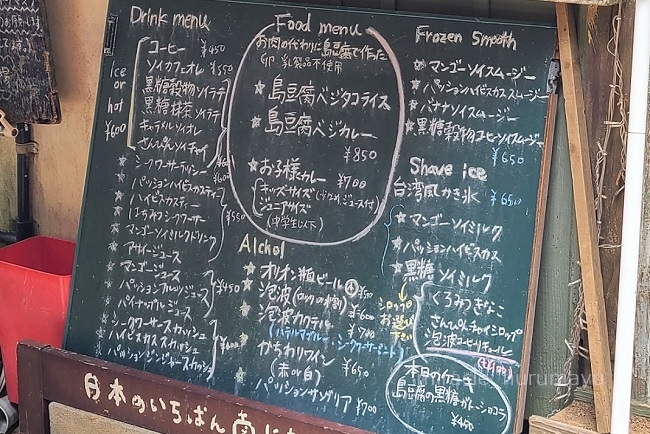 Drink menu
コーヒー ¥450
ソイカフェオレ ¥550
ice or hot
黒糖穀物ソイラテ
黒糖抹茶ソイラテ
キャラメルソイオレ
さんぴんソイチャイ
¥600
★シークワーサーティー
★パッションハイビスカスティー
★ハイビスカスティー
★はちみつシークワーサー
★マンゴーソイミルクドリンク
¥550
★アサイージュース
★マンゴージュース
★パッションフルーツジュース
★パイナップルジュース
¥450
★シークワーサースカッシュ
★ハイビスカススカッシュ
★パッションジンジャースカッシュ
Food menu
お肉の代わりに島豆腐で作った
卵 乳製品不使用
★島豆腐ベジタコライス
★島豆腐ベジカレー
¥850
★お子様カレー ¥700
キッズサイズ
ジュース付
ジュニアサイズ
(中学生以下)
Alchol
★オリオン瓶ビール
★泡波
★泡波カクテル ¥700
★かちわりワイン
(赤or白) ¥650
★パッションサングリア ¥700
Frozen Smooth
★マンゴーソイスムージー
★パッションハイビスカススムージー
★バナナソイスムージー
★黒糖穀物コーヒーソイスムージー
¥650
Shave ice
台湾風かき氷 ¥650
★マンゴーソイミルク
★パッションハイビスカス
★黒糖ソイミルク
シロップお選び下さい
くるみきなこ
さんぴんチャイシロップ
泡波コーヒーリキュール
本日のケーキ
島豆腐の黒糖ガトーショコラ
¥450
日本のいちばん南に